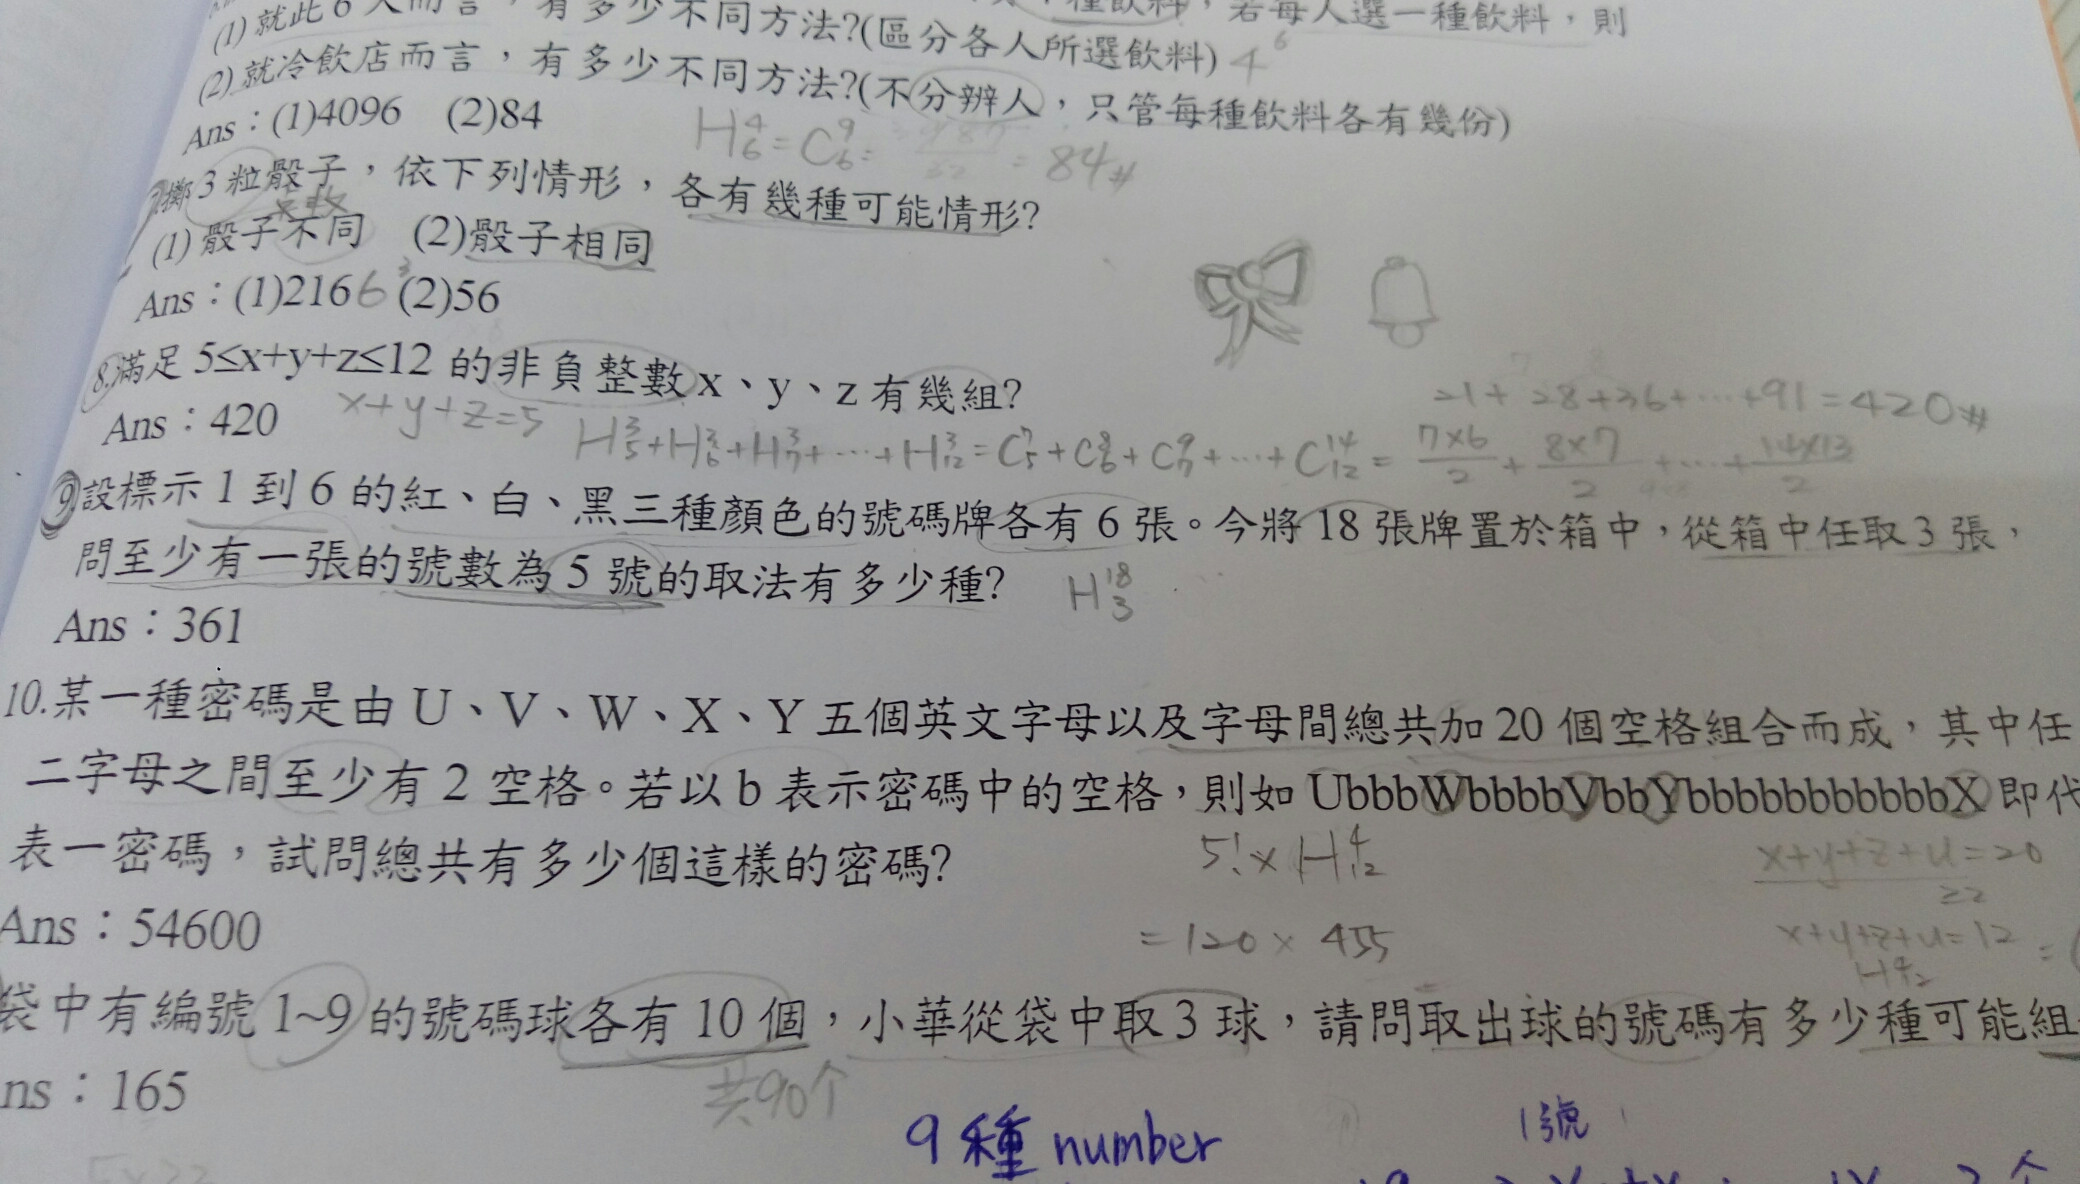 (1)就此6人而言，有多少不同方法?(區分各人所選飲料) 4^6
種飲料，若每人選一種飲料，則
(2)就冷飲店而言，有多少不同方法?(不分辨人，只管每種飲料各有幾份)
Ans：(1)4096 (2)84
H^4_6=C^9_6= =84#
擲3粒骰子，依下列情形，各有幾種可能情形?
(1)骰子不同 (2)骰子相同
Ans：(1)216 6^3 (2)56
8.滿足 5≤x+y+z≤12 的非負整數 x、y、z 有幾組?
Ans：420
x+y+z=5
21+28+36+…+91=420#
H^3_5+H^3_6+H^3_7+…+H^3_12=C^7_5+C^8_6+C^9_7+…+C^14_12=7×6/2+8×7/2+…+14×13/2
9.設標示1到6的紅、白、黑三種顏色的號碼牌各有6張。今將18張牌置於箱中，從箱中任取3張，
問至少有一張的號數為5號的取法有多少種?
H^18_3
Ans：361
10.某一種密碼是由U、V、W、X、Y五個英文字母以及字母間總共加20個空格組合而成，其中任
二字母之間至少有2空格。若以b表示密碼中的空格，則如UbbbWbbbbVbbYbbbbbbbbbbbX即代
表一密碼，試問總共有多少個這樣的密碼?
5!×H^4_12
x+y+z+u=20
≥2
Ans：54600
=120×455
x+y+z+u=12
H^4_12
袋中有編號1~9的號碼球各有10個，小華從袋中取3球，請問取出球的號碼有多少種可能組
ns：165
共90个
9種 number
1號